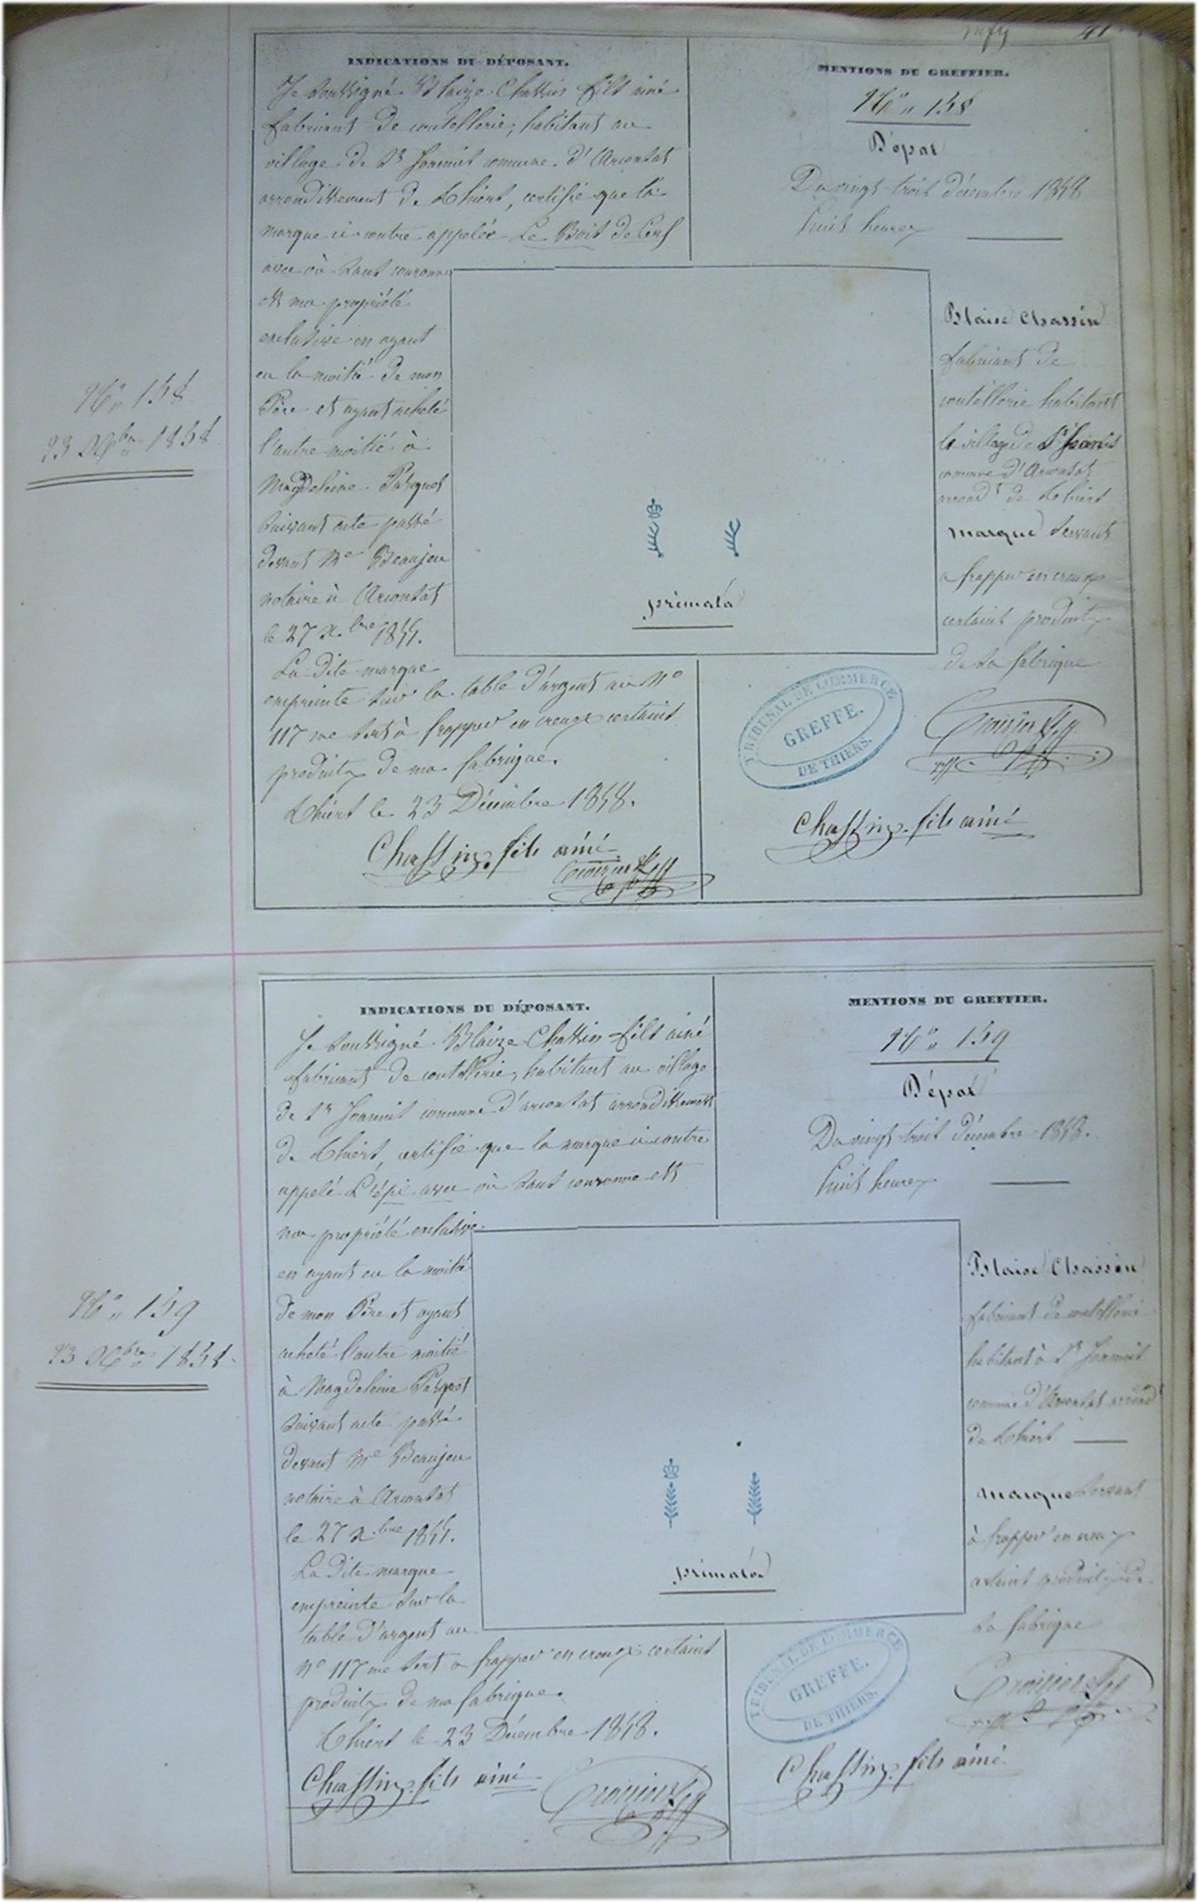 41
INDICATIONS DU DÉPOSANT.
Je soussigné Blaize Chassin fils ainé
fabricant de coutellerie, habitant au
village de St Joannit commune d'Arconsat
arrondissement de Thiers, certifie que la
marque ci-contre appelée Le Bois de Cerf
avec où sans couronne
est ma propriété
exclusive en ayant
eu la moitié de mon
Père et ayant acheté
l'autre moitié à
Magdeleine
suivant acte passé
devant Me Beaujeu
notaire à Arconsat
le 27 Xbre
La dite marque
empreinte sur la table d'argent au No
117 me sert à frapper en creux certains
produits de ma fabrique.
Thiers le 23 Décembre 1858.
Chassin fils ainé
MENTIONS DU GREFFIER.
No 158
Dépôt
Du vingt trois décembre 1858
huit heures
Blaise Chassin
fabricant de
coutellerie habitant
le village de St
commune d'Arconsat
arrondt de Thiers
marque servant
a frapper en creux
certains produits
de sa fabrique
primata
TRIBUNAL DE COMMERCE
GREFFE.
DE THIERS.
Chassin fils ainé
No 158
23 Xbre 1858
INDICATIONS DU DÉPOSANT.
Je soussigné Blaize Chassin fils ainé
fabricant de coutellerie, habitant au village
de St Joannit commune d'arconsat arrondissement
de Thiers, certifie que la marque ci contre
appelé L'épi avec où sans couronne est
ma propriété exclusive
en ayant eu la moitié
de mon Père et ayant
acheté l'autre moitié
à Magdeleine
suivant acte passé
devant Me Beaujeu
notaire à Arconsat
le 27 Xbre
La dite marque
empreinte sur la
table d'argent au
No 117 me sert a frapper en creux certains
produits de ma fabrique.
Thiers le 23 Décembre 1858.
Chassin fils ainé
MENTIONS DU GREFFIER.
No 159
Dépôt
Du vingt trois décembre 1858.
huit heures
Blaise Chassin
fabricant de coutellerie
habitant à St Joannit
commune d'Arconsat arrondt
de Thiers
marque servant
à frapper en creux
certains produits de
sa fabrique
primata
TRIBUNAL DE COMMERCE
GREFFE.
DE THIERS.
Chassin fils ainé
No 159
23 Xbre 1858